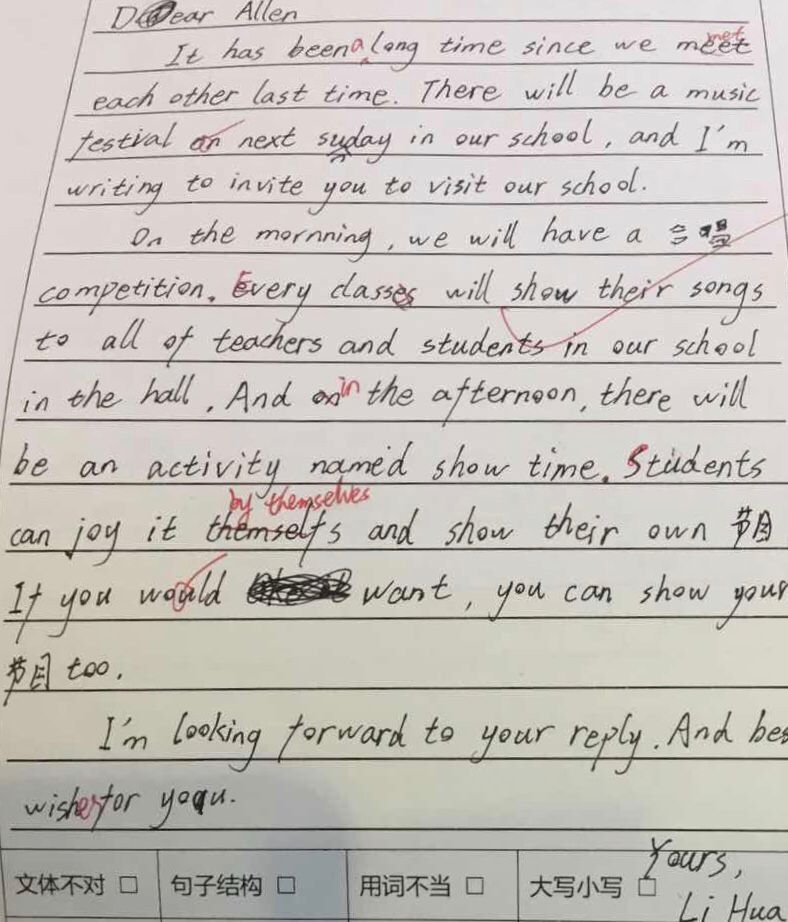 Dear Allen
It has been a long time since we meet met
each other last time. There will be a music
festival on next suday in our school, and I'm
writing to invite you to visit our school.
On the mornning, we will have a 合唱
competition. Every classes will show their songs
to all of teachers and students in our school
in the hall. And on in the afternoon, there will
be an activity named show time. Students
by themselves
can joy it themselfs and show their own 节目
If you would want, you can show your
节目 too.
I'm looking forward to your reply. And bes
wishes for you.
Yours,
文体不对 □ 句子结构 □ 用词不当 □ 大写小写 □
Li Hua